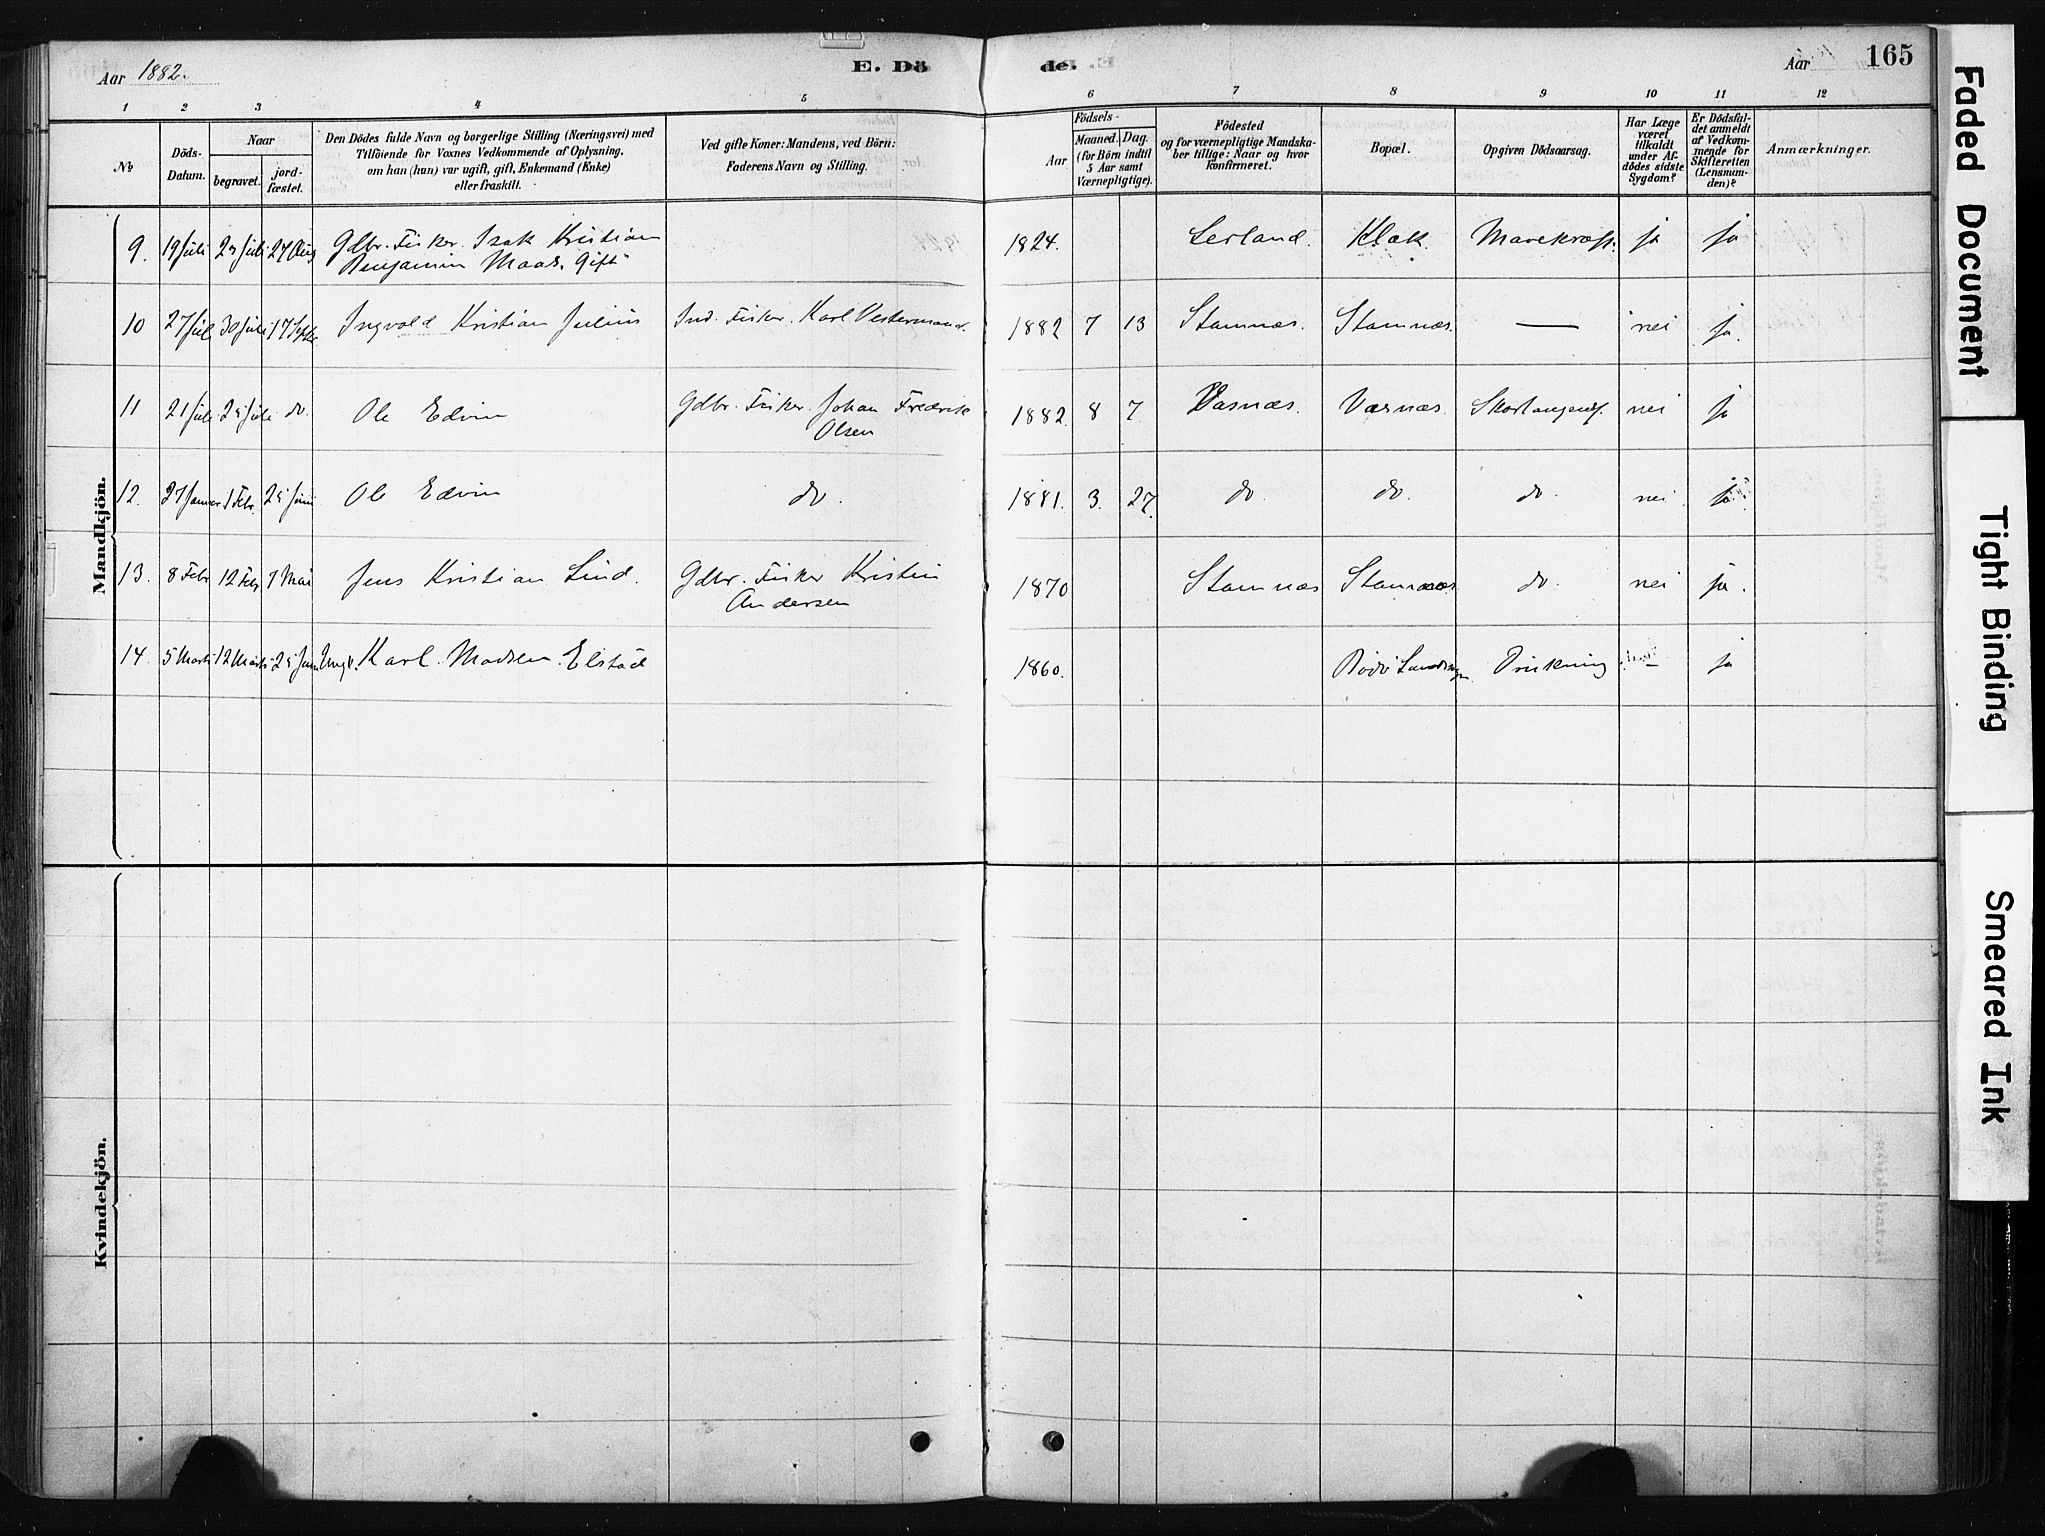 Aar 1882. E. Dö de. Aar 165
1 2 3 4 5 6 7 8 9 10 11 12
№ Döds-Datum. Naar begravet. jordfæstet. Den Dödes fulde Navn og borgerlige Stilling (Næringsvei) med Tilföiende for Voxnes Vedkommende af Oplysning, om han (hun) var ugift, gift, Enkemand (Enke) eller fraskilt. Ved gifte Koner: Mandens, ved Börn: Faderens Navn og Stilling. Födsels- Aar Maaned. Dag. (for Börn indtil 5 Aar samt Værnepligtige). Födested og for værnepligtige Mandskaber tillige: Naar og hvor konfirmeret. Bopæl. Opgiven Dödsaarsag. Har Læge været tilkaldt under Afdödes sidste Sygdom? Er Dödsfaldet anmeldt af Vedkommende for Skifteretten (Lensmanden)? Anmærkninger.
Mandkjön.
9. 19 Juli Juli 27 Aug Gdbr. Fisker. Izak Kristian 1824. Lerland. Klæk. ja ja
Benjamin Gift
10 27 Juli 30 Juli 17 Septbr Ingvald Kristian Julius Ind. Fisker. Karl Vestermand. 1882 7 13 Stamnæs. Stamnæs. — nei ja.
11 21 Juli 25 Juli do. Ole Edvin Gdbr. Fisker. Johan Fredrik 1882. 8 7 Vasnæs. Vasnæs. nei ja
Olsen
12. 27 Januar 1 Febr. 25 Juni Ole Edvin do. 1881. 3. 27. do. do. do. nei ja.
13. 8 Febr 12 Febr 7 Mai Jens Kristian Lind. Gdbr. Fisker Kristian 1870 Stamnæs Stamnæs. do. nei ja.
Andersen
14. 5 Marts 12 Marts 25 Juni Ungk. Karl Madsen Elstad 1860. Bodö Drukning — ja
Kvindekjön.
Faded Document
Tight Binding
Smeared Ink